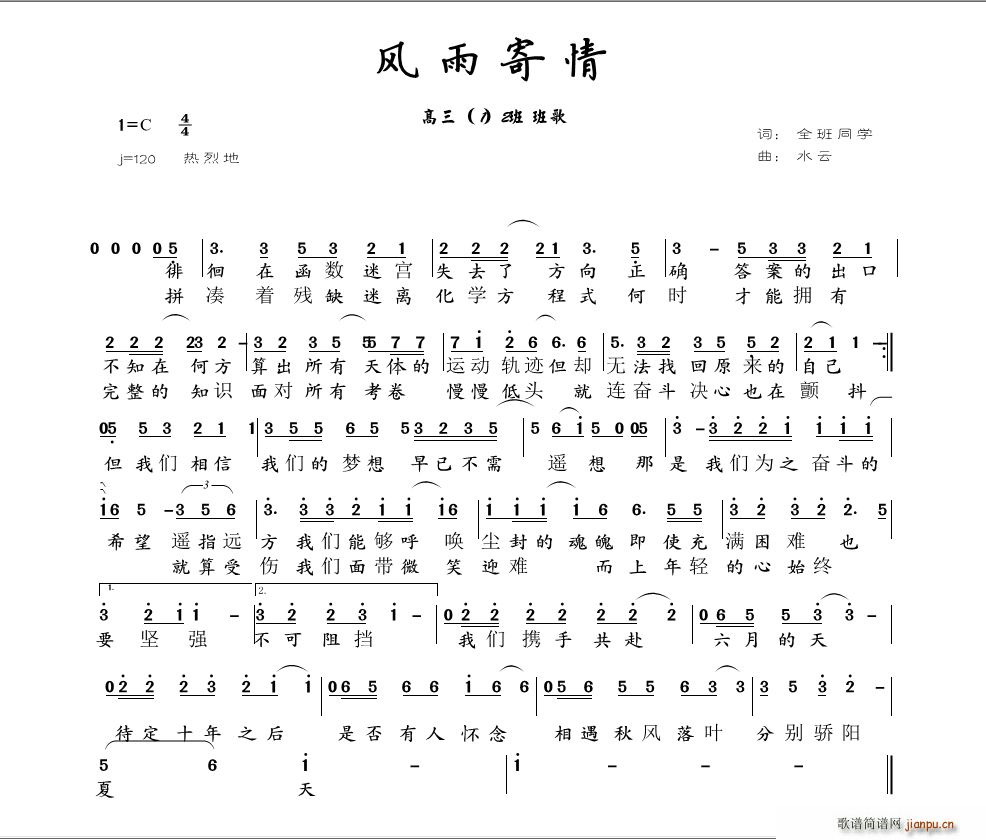 风雨寄情
高三（1）2班 班歌
1=C 4/4
词： 全班同学
j=120 热烈地
曲： 水云
0 0 0 05 3. 3 5 3 2 1 2 2 2 21 3. 5 3 - 5 3 3 2 1
徘徊在函数迷宫失去了方向正确答案的出口
拼凑着残缺迷离化学方程式何时才能拥有
2 2 2 23 2 - 3 2 3 5 5 7 7 7 1 2 6 6. 6 5. 3 5 5 2 2 1 1 -
不知在何方算出所有天体的运动轨迹但却无法找回原来的自己
完整的知识面对所有考卷慢慢低头就连奋斗决心也在颤抖
05 5 3 2 1 1 3 5 5 6 5 5 3 2 3 5 5 6 1 5 0 05 3 - 3 2 2 1 1 1 1
但我们相信我们的梦想早已不需遥想那是我们为之奋斗的
16 5 - 3 5 6 3. 3 3 2 1 1 16 1 1 1 1 6 6. 5 5 3 2 3 2 2. 5
3
希望遥指远方我们能够呼唤尘封的魂魄即使充满困难也
就算受伤我们面带微笑迎难而上年轻的心始终
1. 2.
3 2 1 1 - 3 2 2 3 1 - 0 2 2 2 2 2 2 2 0 6 5 5 3 3
要坚强不可阻挡我们携手共赴六月的天
0 2 2 2 3 2 1 1 0 6 5 6 6 1 6 6 0 5 6 5 5 6 3 3 3 5 3 2 -
待定十年之后是否有人怀念相遇秋风落叶分别骄阳
5 6 1 - - 1 - - -
夏天
歌谱简谱网 jianpu.cn